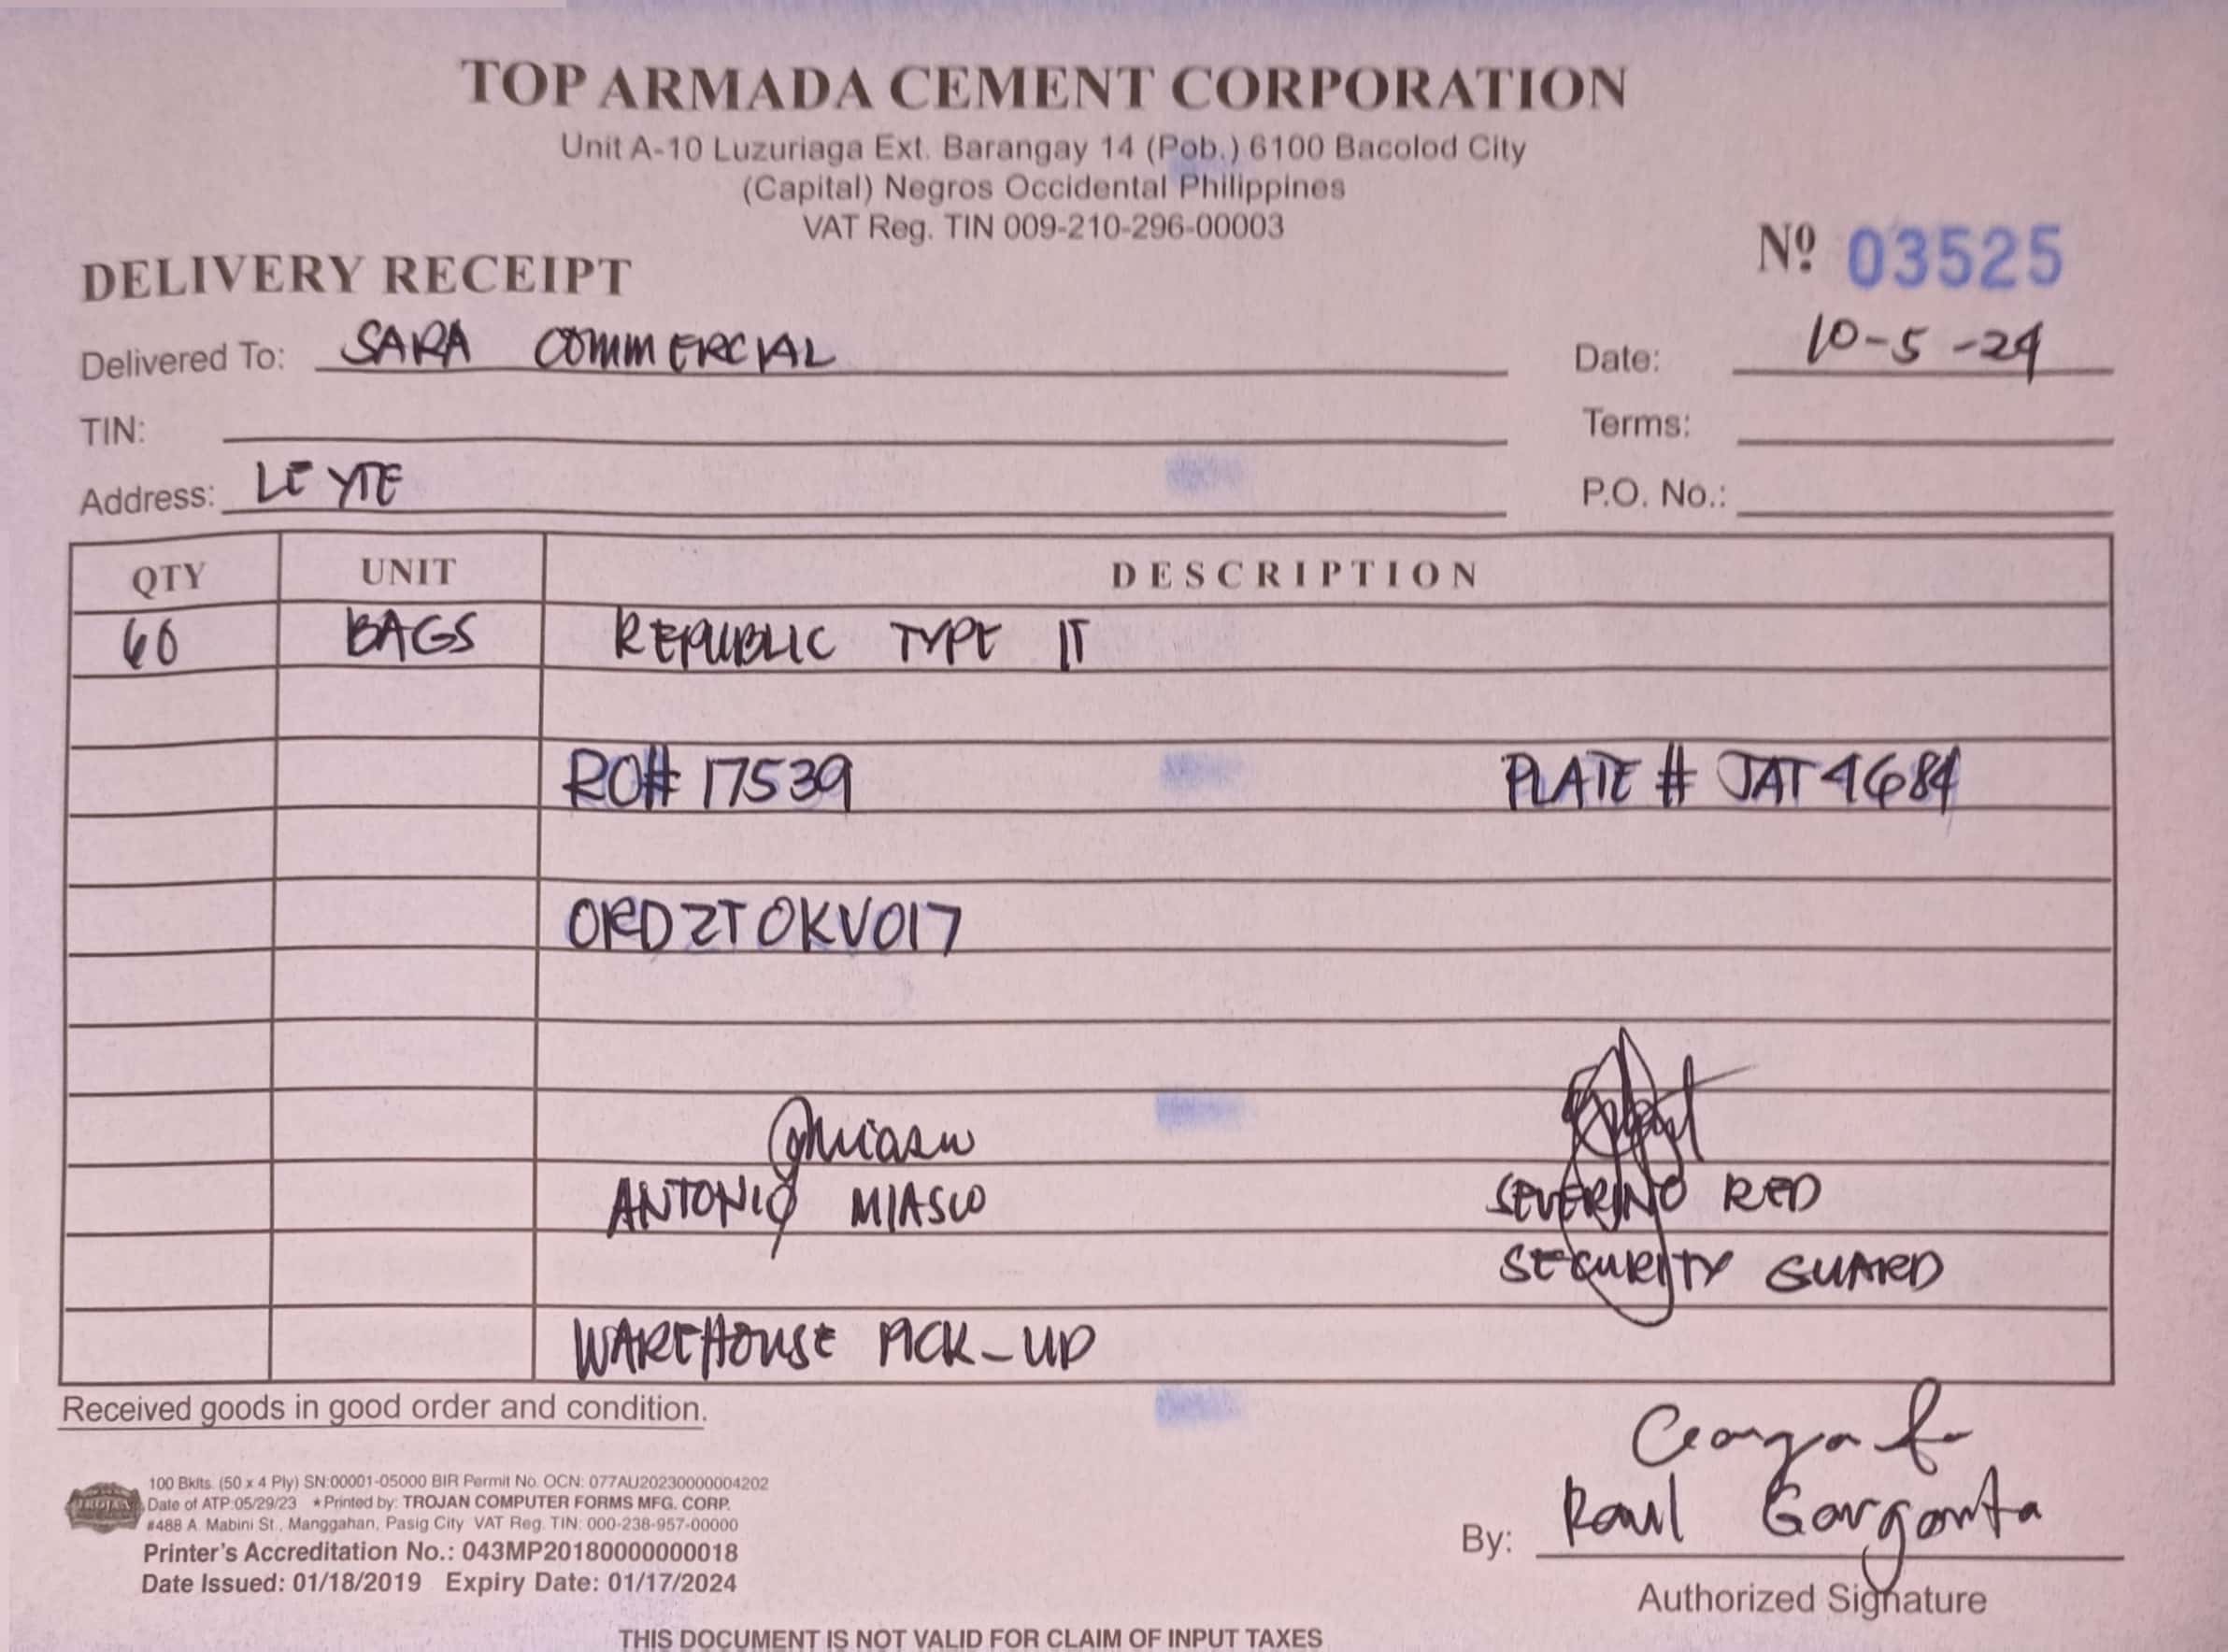 TOP ARMADA CEMENT CORPORATION
Unit A-10 Luzuriaga Ext. Barangay 14 (Pob.) 6100 Bacolod City
(Capital) Negros Occidental Philippines
VAT Reg. TIN 009-210-296-00003
Nº 03525
DELIVERY RECEIPT
Delivered To: SARA COMMERCIAL Date: 10-5-24
TIN: Terms:
Address: LEYTE P.O. No.:
QTY UNIT DESCRIPTION
60 BAGS REPUBLIC TYPE 1T
RO# 17539 PLATE # JAT 4684
ORDZTOKV017
ANTONIO MIASCO SEVERINO RED
SECURITY GUARD
WAREHOUSE PICK-UP
Received goods in good order and condition.
100 Bklts. (50 x 4 Ply) SN:00001-05000 BIR Permit No. OCN: 077AU20230000004202
TROJAN Date of ATP:05/29/23 * Printed by: TROJAN COMPUTER FORMS MFG. CORP.
#488 A. Mabini St., Manggahan, Pasig City VAT Reg. TIN: 000-238-957-00000
Printer's Accreditation No.: 043MP20180000000018
Date Issued: 01/18/2019 Expiry Date: 01/17/2024
By: Raul Garganta
Authorized Signature
THIS DOCUMENT IS NOT VALID FOR CLAIM OF INPUT TAXES